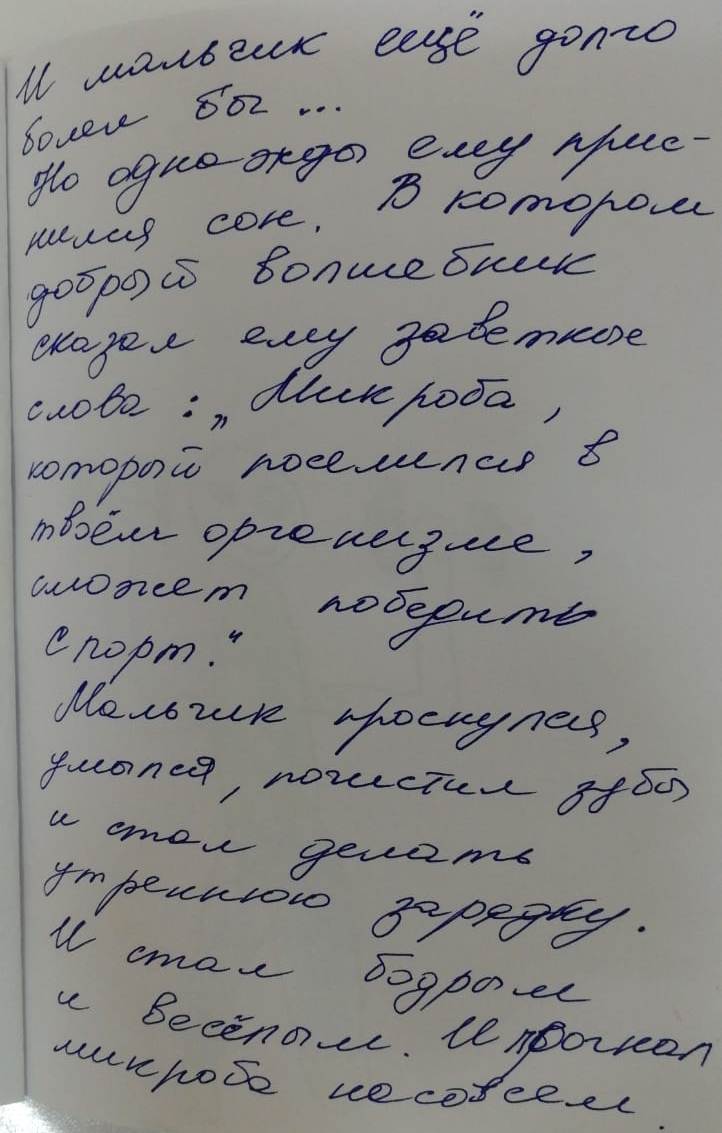 И мальчик ещё долго
болел бы ...
Но однажды ему прис-
нился сон. В котором
добрый волшебник
сказал ему заветные
слова : „Микроба,
который поселился в
твоём организме,
сможет победить
спорт."
Мальчик проснулся,
умылся, почистил зубы
и стал делать
утреннюю зарядку.
И стал бодрым
и весёлым. И прогнал
микроба насовсем.